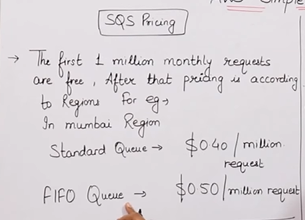 Simple
SQS Pricing
→ The first 1 million monthly requests
are free, After that pricing is according
to Regions For eg→
In mumbai Region
Standard Queue → $040/million
request
FIFO Queue → $050/million request